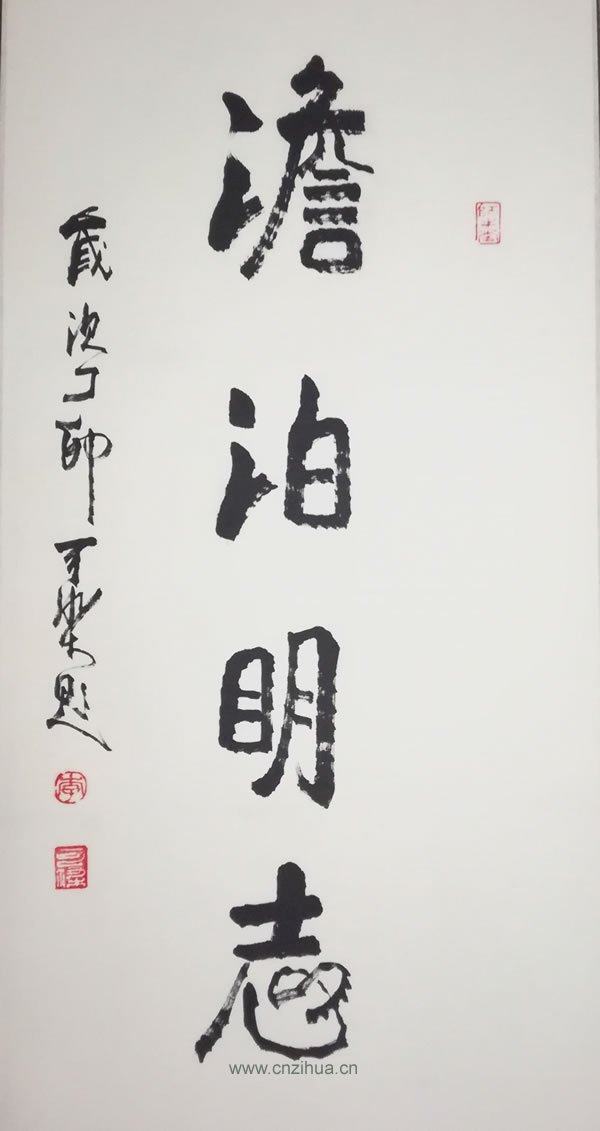 澹泊明志
歲次丁卯 可染題
李
可染
www.cnzihua.cn